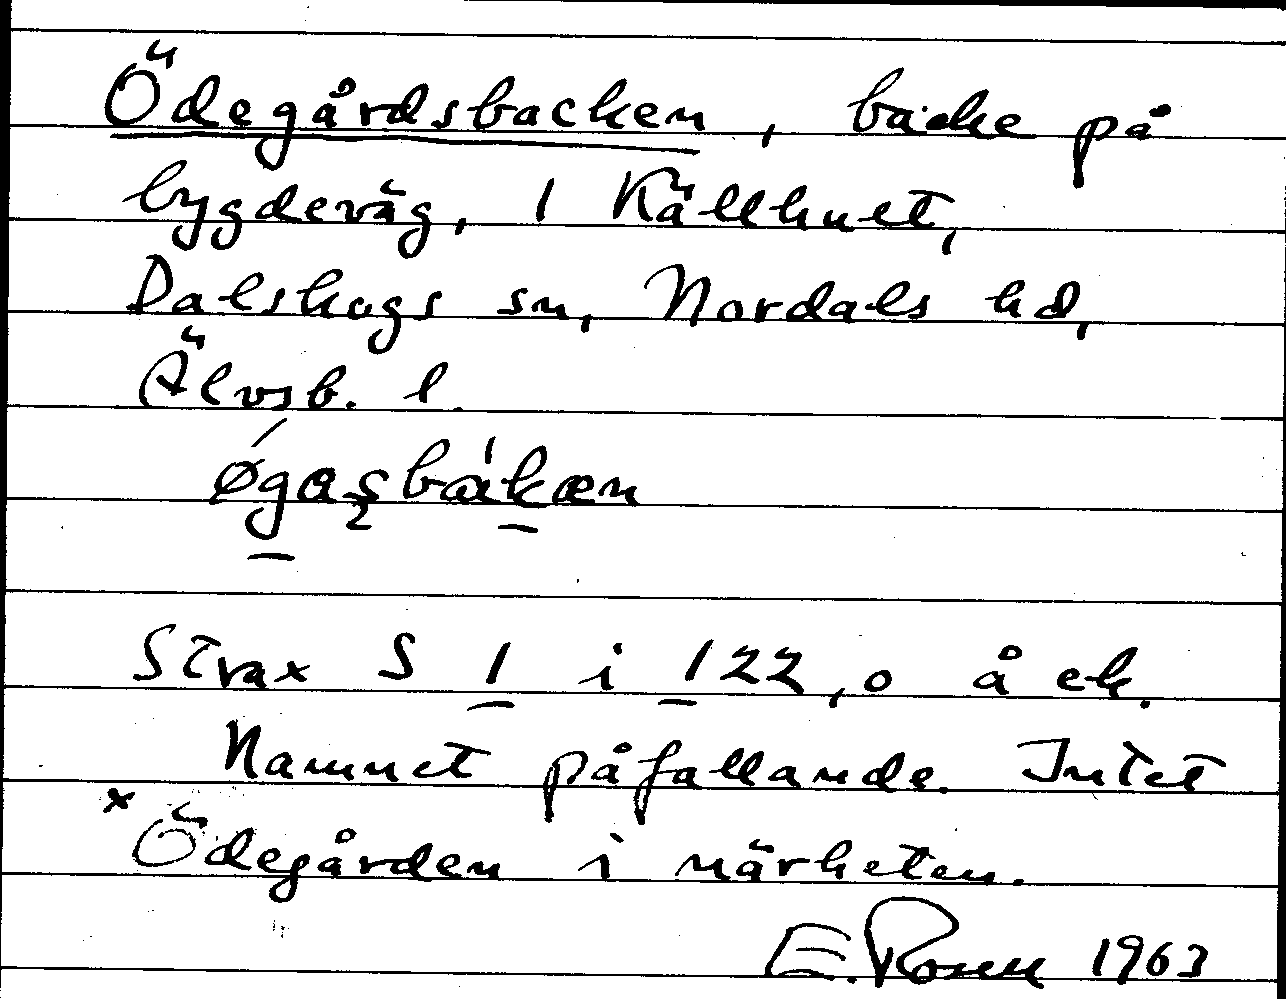 Ödegårdsbacken, backe på
bygdeväg, i Källhult,
Dalskogs sn, Nordals hd,
Älvsb. l.
øgasbákæn
Strax S 1 i 122,0 å ek.
Namnet påfallande. Intet
× Ödegården i närheten.
E. Rosell 1963